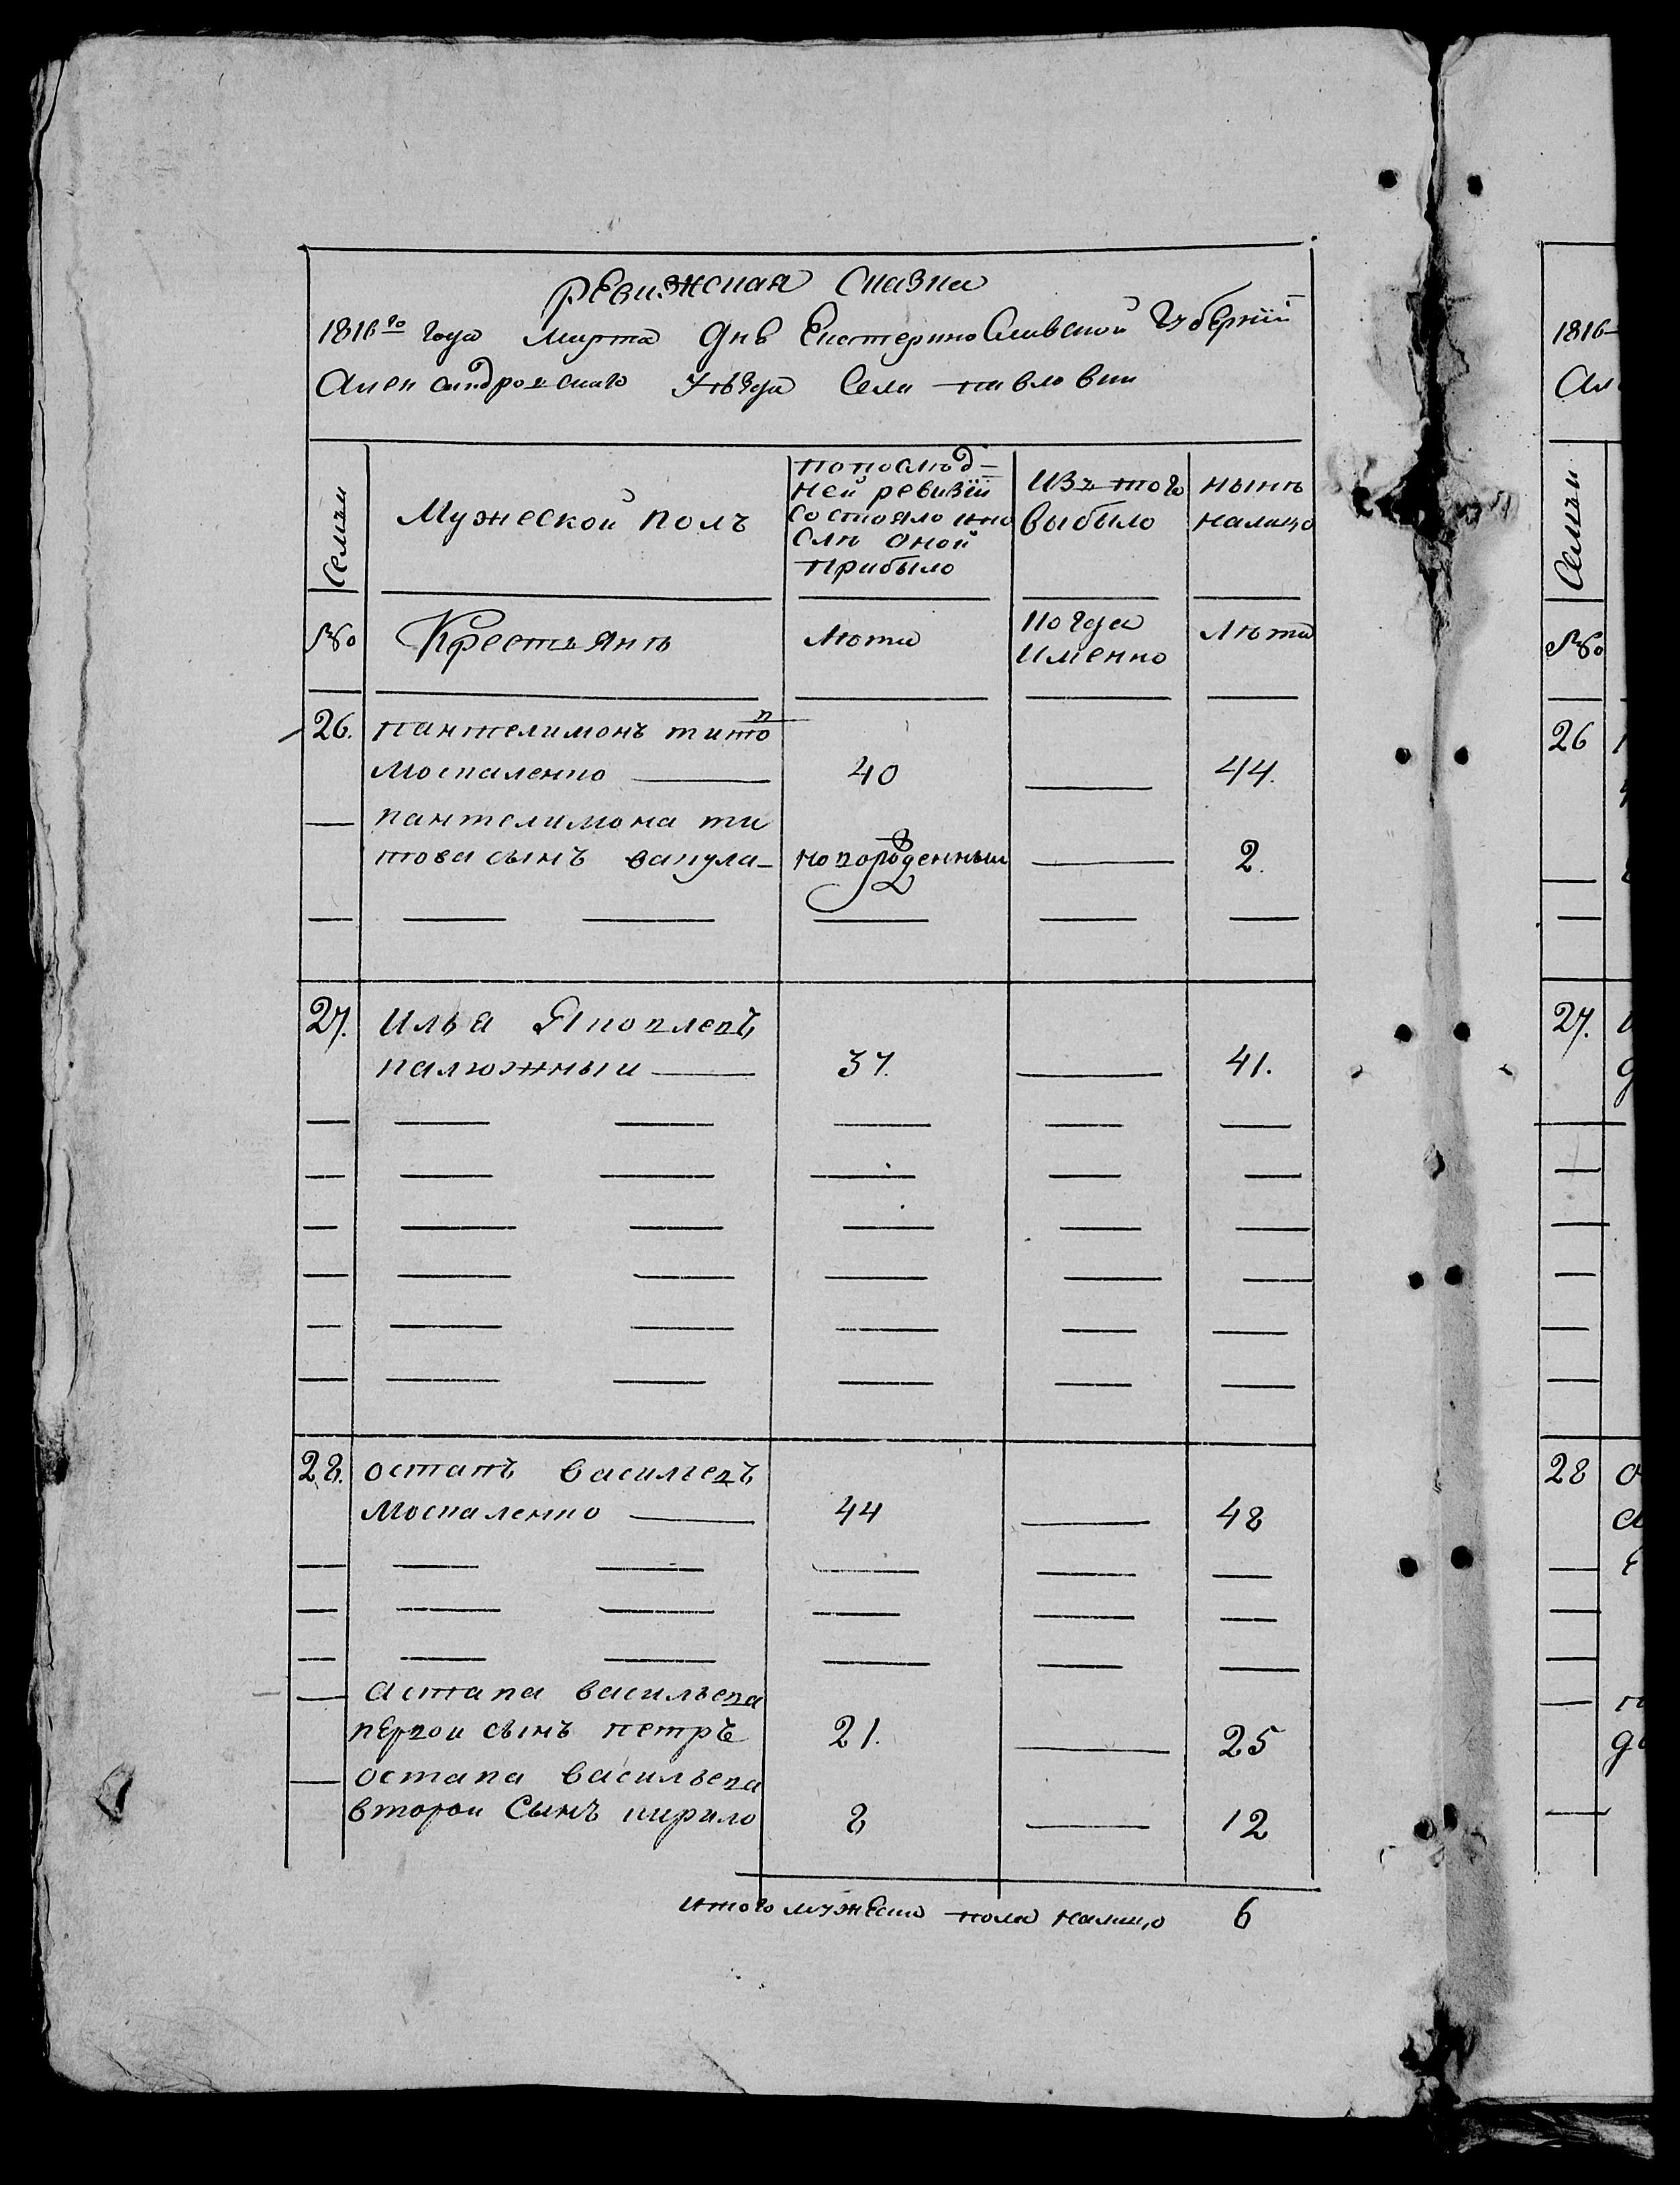 Ревижская Сказка
1816го года Марта дня Екатеринославской Губернїи
Александровского Уѣзда Села Павловки
Семьи
Мужеской полъ
по послѣд-
ней ревизїи
состояло и по
слѣ оной
прибыло
Изъ того
выбыло
нынѣ
налицо
№
Крестьянѣ
Лѣта
Когда
Именно
Лѣта
26. пантелимонъ титов
москаленко — 40 — 44.
— пантелимона ти
това сынъ вакула — новорожденный — 2.
27. Илья Яковлевъ
калюжный — 37. — 41.
28. остапъ васильевъ
москаленко — 44 — 48
— астапа васильева
первой сынъ петръ 21. — 25
— остапа васильева
второй Сынъ кирило 8 — 12
Итого мужеска пола налицо 6
1816
Ал
Семьи
№
26
27.
28